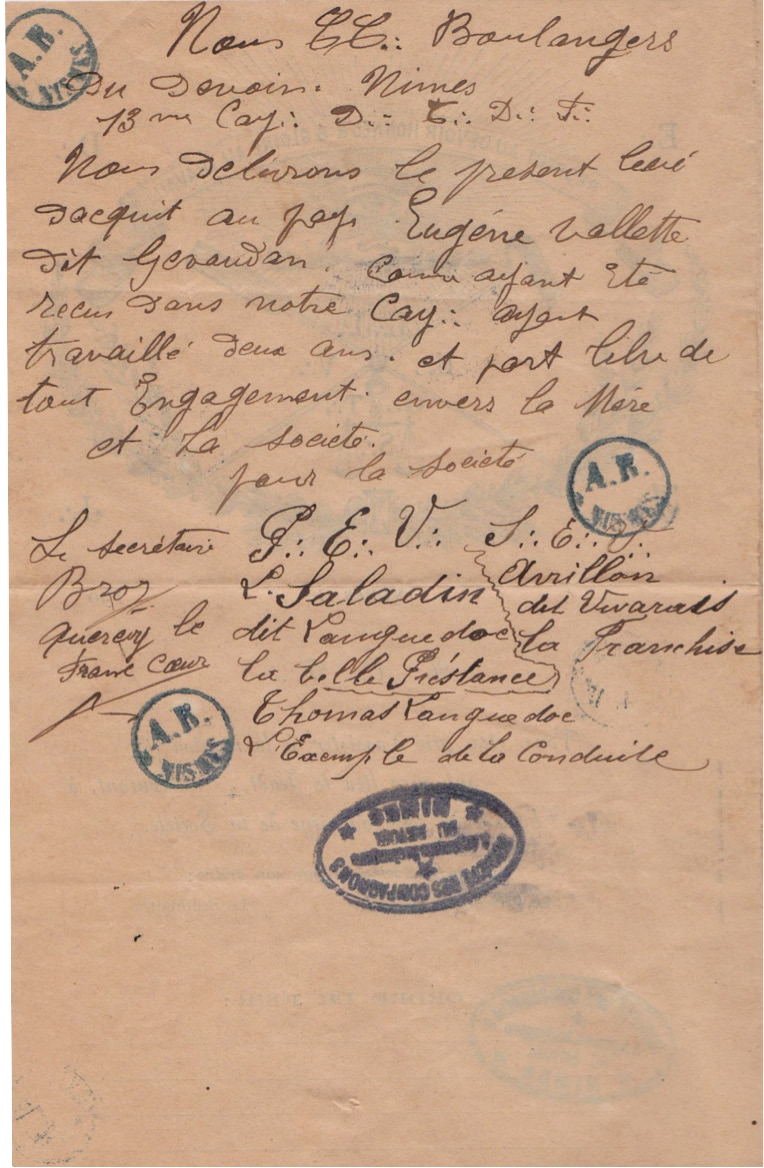 A.R. NISMES
Nous CC.: Boulangers
Du Devoir. Nimes
13 me Cay.: D.: T.: D.: F.:
Nous Delivrons le present levé
dacquit au pays Eugéne Vallette
dit Gevaudan. Comme ayant Eté
recu Dans notre Cay.: ayant
travaillé deux ans. et part libre de
tout Engagement. envers la Mère
et La Societé.
pour la Societé
A.R. NISMES
Le secrétaire P.: E.: V.: S.: E.:
L. Saladin Avrillon
dit Vivarais
Quercy le dit Languedoc la Franchise
Franc Cœur la belle Préstance
Thomas Languedoc
L'Exemple de la Conduite
A.R. NISMES
SOCIÉTÉ DES COMPAGNONS
Boulangers
DU DEVOIR
NIMES